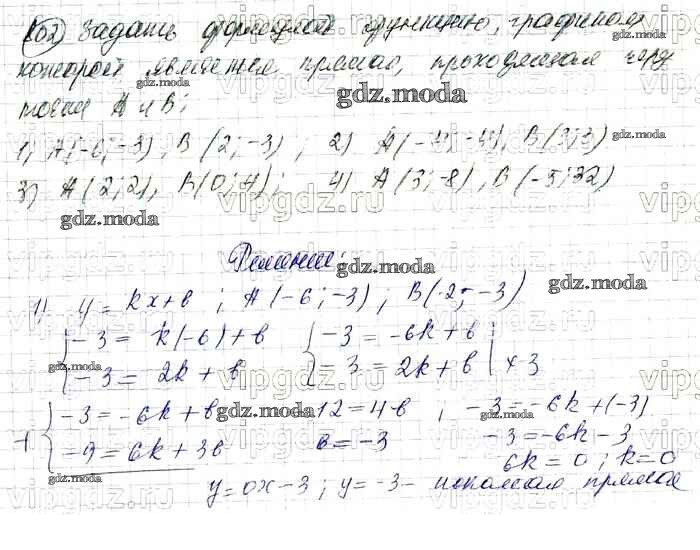 102) Задать формулой функцию, графиком
которой является прямая, проходящая через
точки A и B:
1) A(-6; -3), B(2; -3); 2) A(-4; -4), B(3; 3)
3) A(2; 2), B(0; 4); 4) A(3; -8), B(-5; 32)
Решение:
1) y = kx + b; A(-6; -3); B(2; -3)
-3 = k(-6) + b -3 = -6k + b
-3 = 2k + b -3 = 2k + b | × 3
-3 = -6k + b -12 = 4b; -3 = -6k + (-3)
-9 = 6k + 3b b = -3 -3 = -6k - 3
6k = 0; k = 0
y = 0x - 3; y = -3 - искомая прямая
gdz.moda
vipgdz.ru